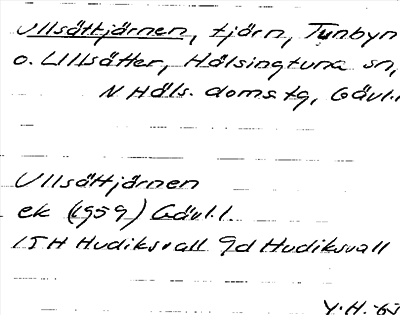 Ullsättjärnen, tjärn, Tunbyn
o. Lillsätter, Hälsingtuna sn,
N Häls. doms.tg, Gävl.l
Ullsättjärnen
ek (1959) Gävl.l.
15H Hudiksvall 9d Hudiksvall
Y.H. -63